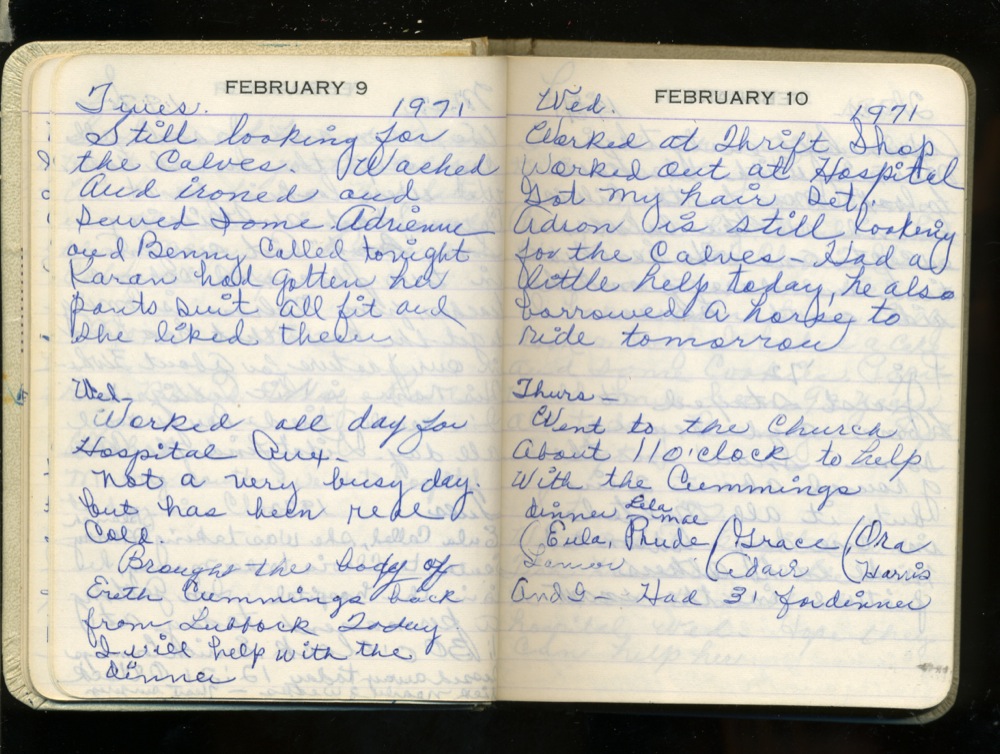 FEBRUARY 9
Tues. 1971
Still looking for
the Calves. Washed
And ironed and
Sewed Some. Adrienne
and Benny Called tonight
Karan had gotten her
pants suit all fit and
She liked them
Wed-
Worked all day for
Hospital Aux-
Not a very busy day.
but has been real
Cold.
Brought the body of
Ereth Cummings back
from Lubbock Today
I will help with the
dinner
FEBRUARY 10
Wed. 1971
Worked at Thrift Shop
Worked out at Hospital
Got my hair Set.
Adron is still looking
for the Calves - Had a
little help today, he also
borrowed A horse to
ride tomorrow
Thurs -
Went to the Church
About 11 o'clock to help
With the Cummings
dinner Lela Mae
(Eula, Prude (Grace (Ora
Adair (Harris
And I - Had 31 for dinner